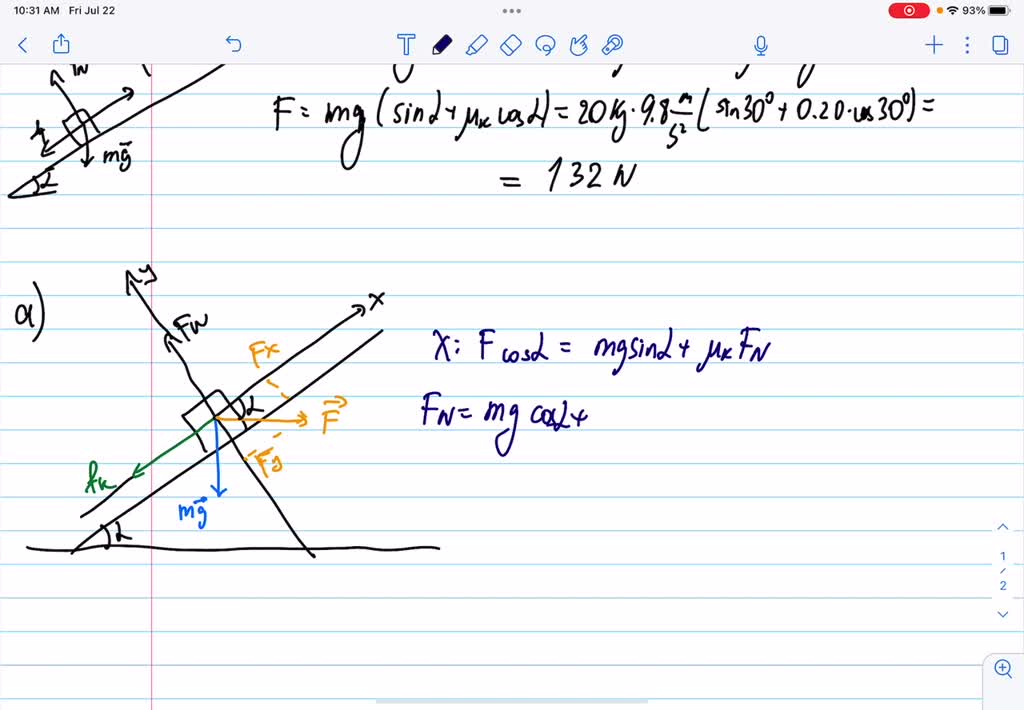 10:31 AM Fri Jul 22
93%
T
mg⃗
α
F = mg (sinα + μₖ cosα) = 20 kg · 9.8 m/s² (sin30° + 0.20 · cos30°) =
= 132 N
a)
y
FN
x
Fx
α
F⃗
Fy
fk
mg⃗
α
X: F cosα = mgsinα + μₖ FN
FN = mg cosα +
1
/
2